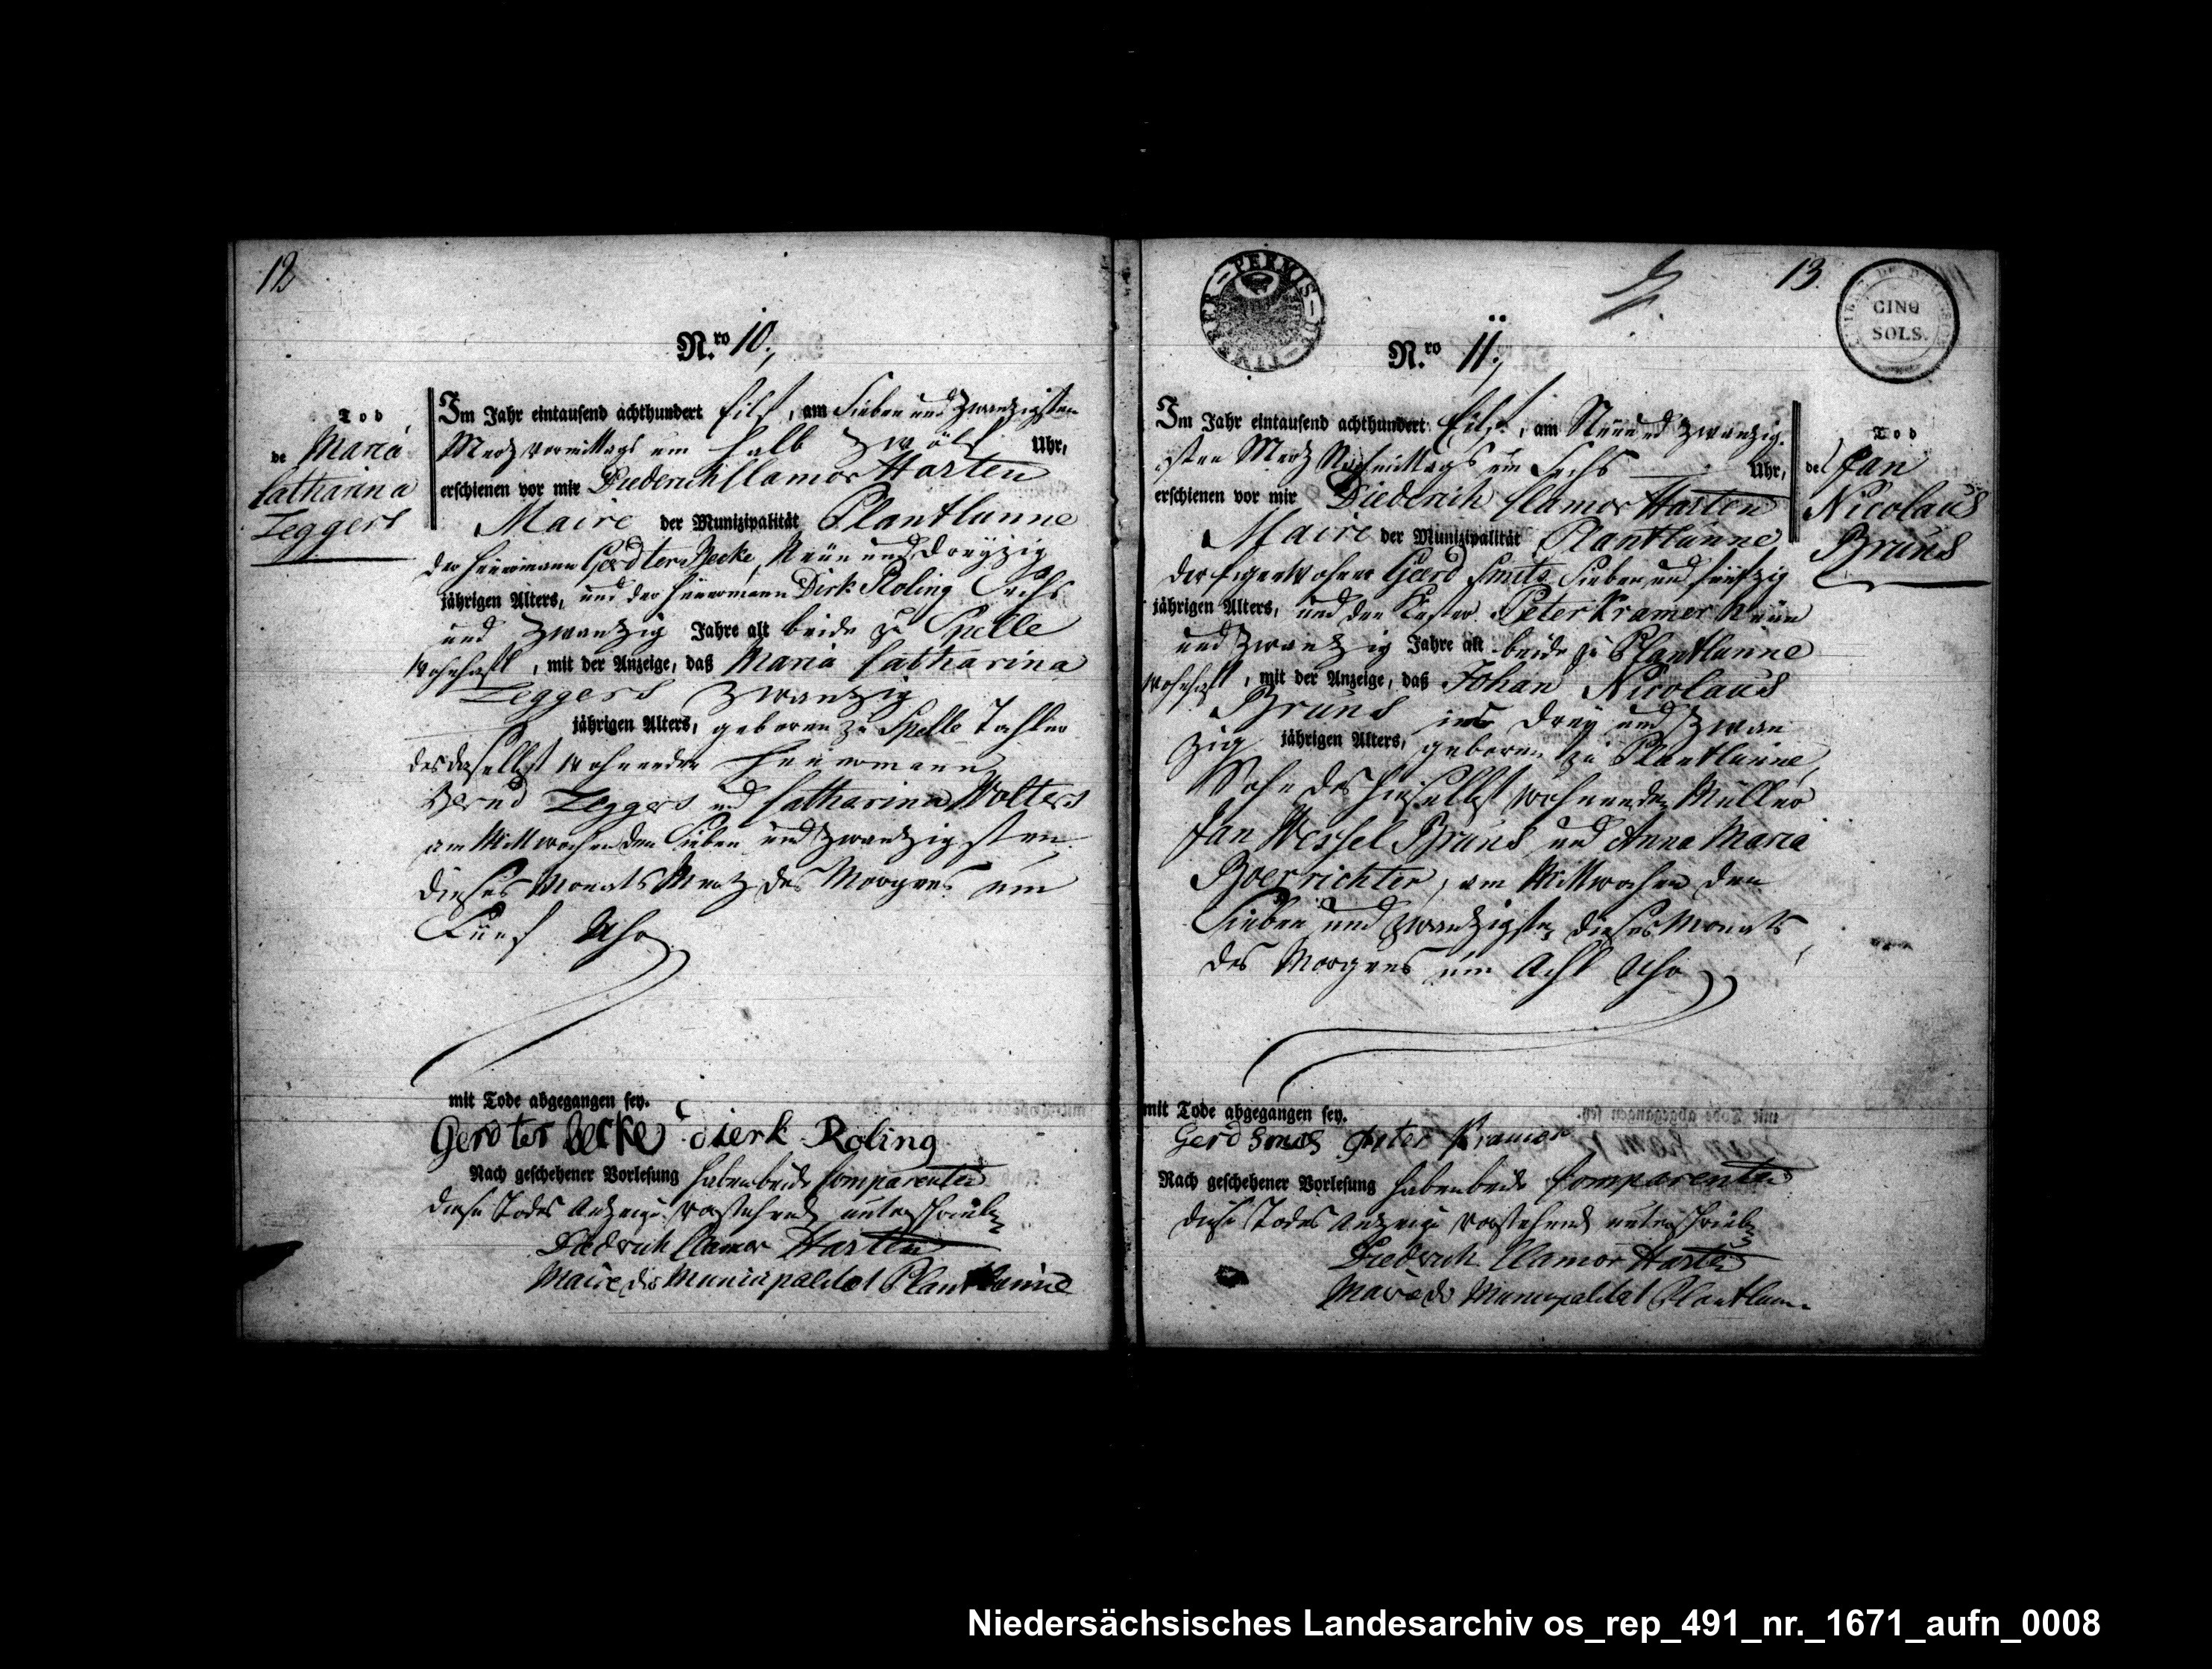 12
N.ro 10.,
Tod
de Maria
Catharina
Zeggers
Im Jahr eintausend achthundert Eilf, am Sieben und zwanzigsten
Merz vormittags um halb zwölf Uhr,
erschienen vor mir Diederich Clamor Harten
Maire der Munizipalität Plantlünne
der Heuermann Gerd ter Becke, Neün und dreyzig
jährigen Alters, und der Heuermann Dirk Roling Sechs
und zwanzig Jahre alt beide zu Spelle
wohnhaft, mit der Anzeige, daß Maria Catharina
Zeggers zwanzig
jährigen Alters, geboren zu Spelle Tochter
des daselbst wohnenden Heuermann
Bernd Zeggers und Catharina Wolters
am Mittwochen den Sieben und zwanzigsten
dieses Monats Merz des Morgens um
Fünf Uhr
mit Tode abgegangen sey.
Gerd ter Becke dierk Roling
Nach geschehener Vorlesung haben beide Comparenten
diese Todes Anzeige vorstehend unterschrieben
Diedrich Clamor Harten
Maire der Municipalitat Plantlünne
PERMIS
13.
CINQ
SOLS.
N.ro 11.,
Tod
des Jan
Nicolaus
Bruns
Im Jahr eintausend achthundert Eilf, am Neun und zwanzig-
sten Merz Nachmittags um Sechs Uhr,
erschienen vor mir Diederich Clamor Harten
Maire der Munizipalität Plantlünne
der Eigenwohner Gerd Smits Sieben und fünfzig
jährigen Alters, und der Küster Peter Kramer Neün
und zwanzig Jahre alt beide zu Plantlünne
wohnhaft, mit der Anzeige, daß Johan Nicolaus
Bruns drey und zwan
zig jährigen Alters, geboren zu Plantlünne,
Sohn des hieselbst wohnenden Müller
Jan Wessel Bruns und Anna Maria
Boerrichter, am Mittwochen den
Sieben und zwanzigsten dieses Monats
des Morgens um Acht Uhr
mit Tode abgegangen sey.
Gerd Smits Peter Kramer
Nach geschehener Vorlesung haben beide Comparenten
diese Todes Anzeige vorstehend unterschrieben
Diedrich Clamor Harten
Maire der Municipalitat Plantlünne
Niedersächsisches Landesarchiv os_rep_491_nr._1671_aufn_0008